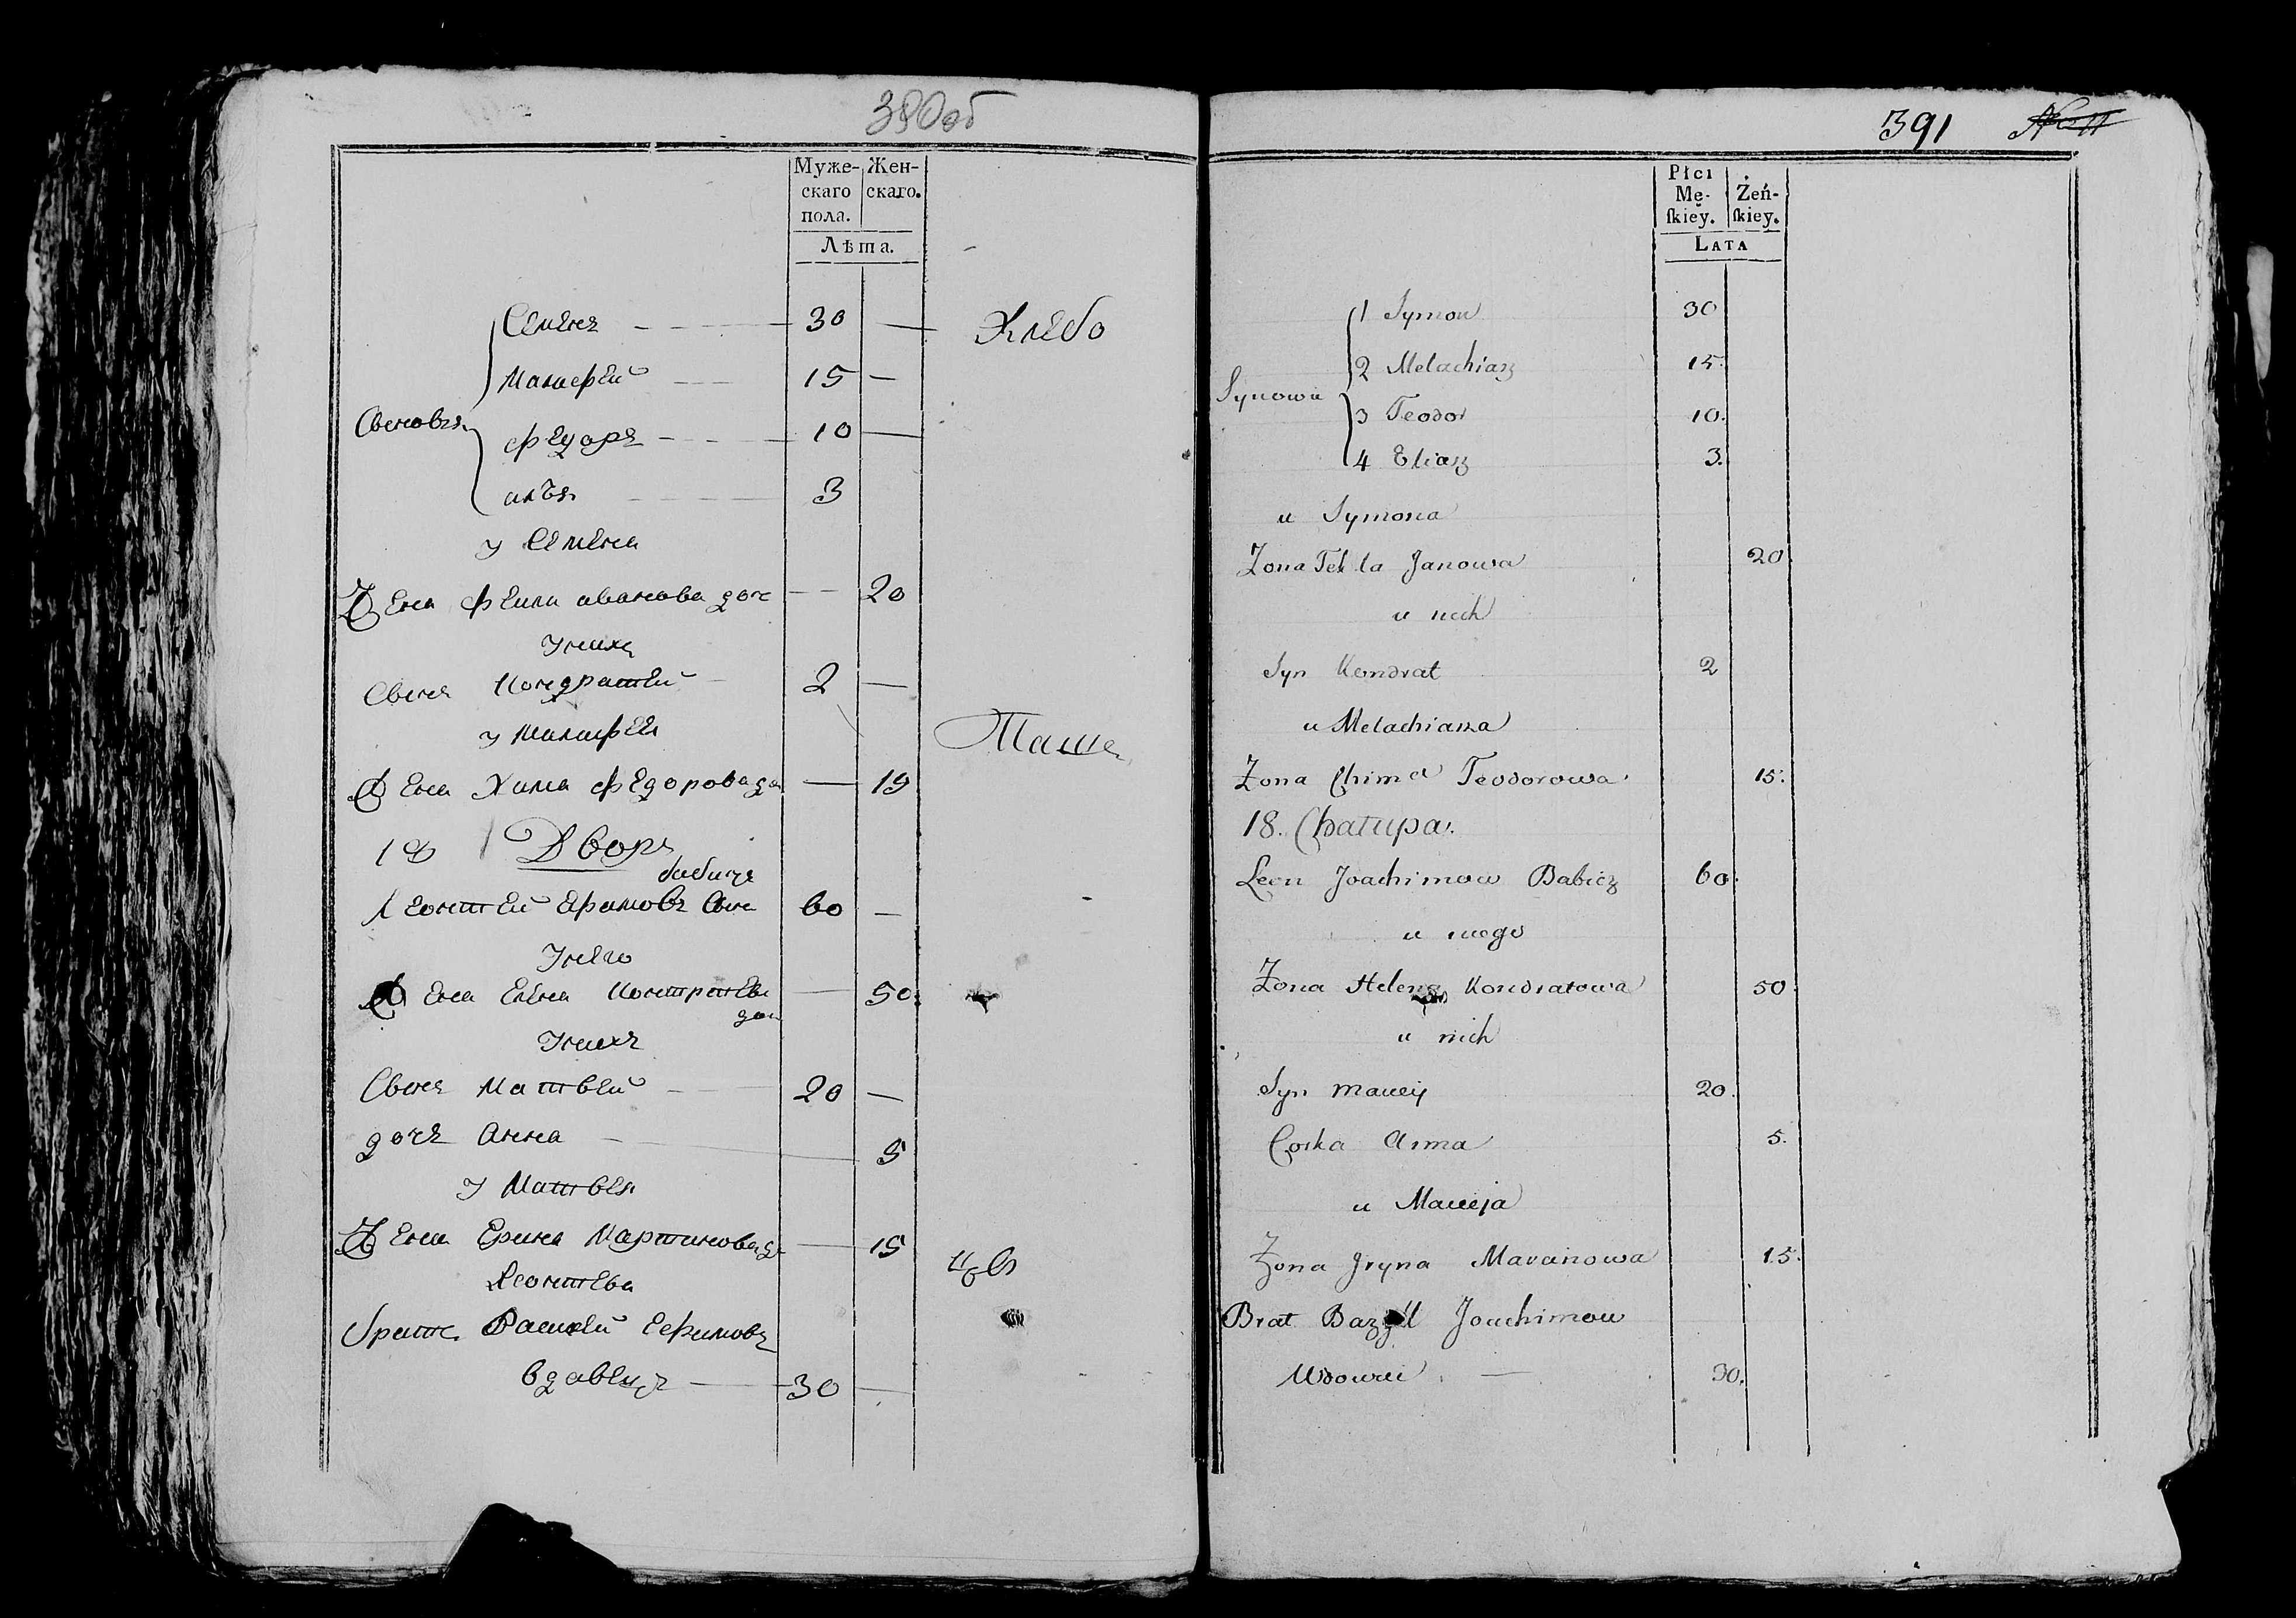 390об
Муже- Жен-
скаго скаго.
пола.
Лѣта.
Семенъ 30 Хлебо
Малафей 15
Сыновья
Федоръ 10
илья 3
у Семена
Жена Фекла иванова доч 20
У нихъ
Сынъ Кондратей 2
у Малафея
Жена Хима Федорова до 19
18 Дворъ
бабичъ
Леонтей Ефимовъ Сын 60
У него
Жена Елена Контратева 50
доч
У нихъ
Сынъ Матвей 20
дочь Анна 5
у Матвея
Жена Ерина Мартинова д 15
Леонтева
братъ Василей Ефимовъ
вдавецъ 30
391 No 11
Płci
Mę- Żeń-
ſkiey. ſkiey.
LATA
1 Symon 30
2 Melachiasz 15.
Synowie
3 Teodor 10.
4 Eliasz 3.
u Symona
Zona Tekla Janowa 20
u nich
Syn Kondrat 2
u Melachiasza
Zona Chima Teodorowa 15.
18. Chatupa.
Leon Joachimow Babicz 60.
u niego
Zona Helena Kondratowa 50
u nich
Syn Maciey 20.
Corka Anna 5.
u Macieja
Zona Jryna Marcinowa 15.
Brat Bazyl Joachimow
Wdowiec 30.